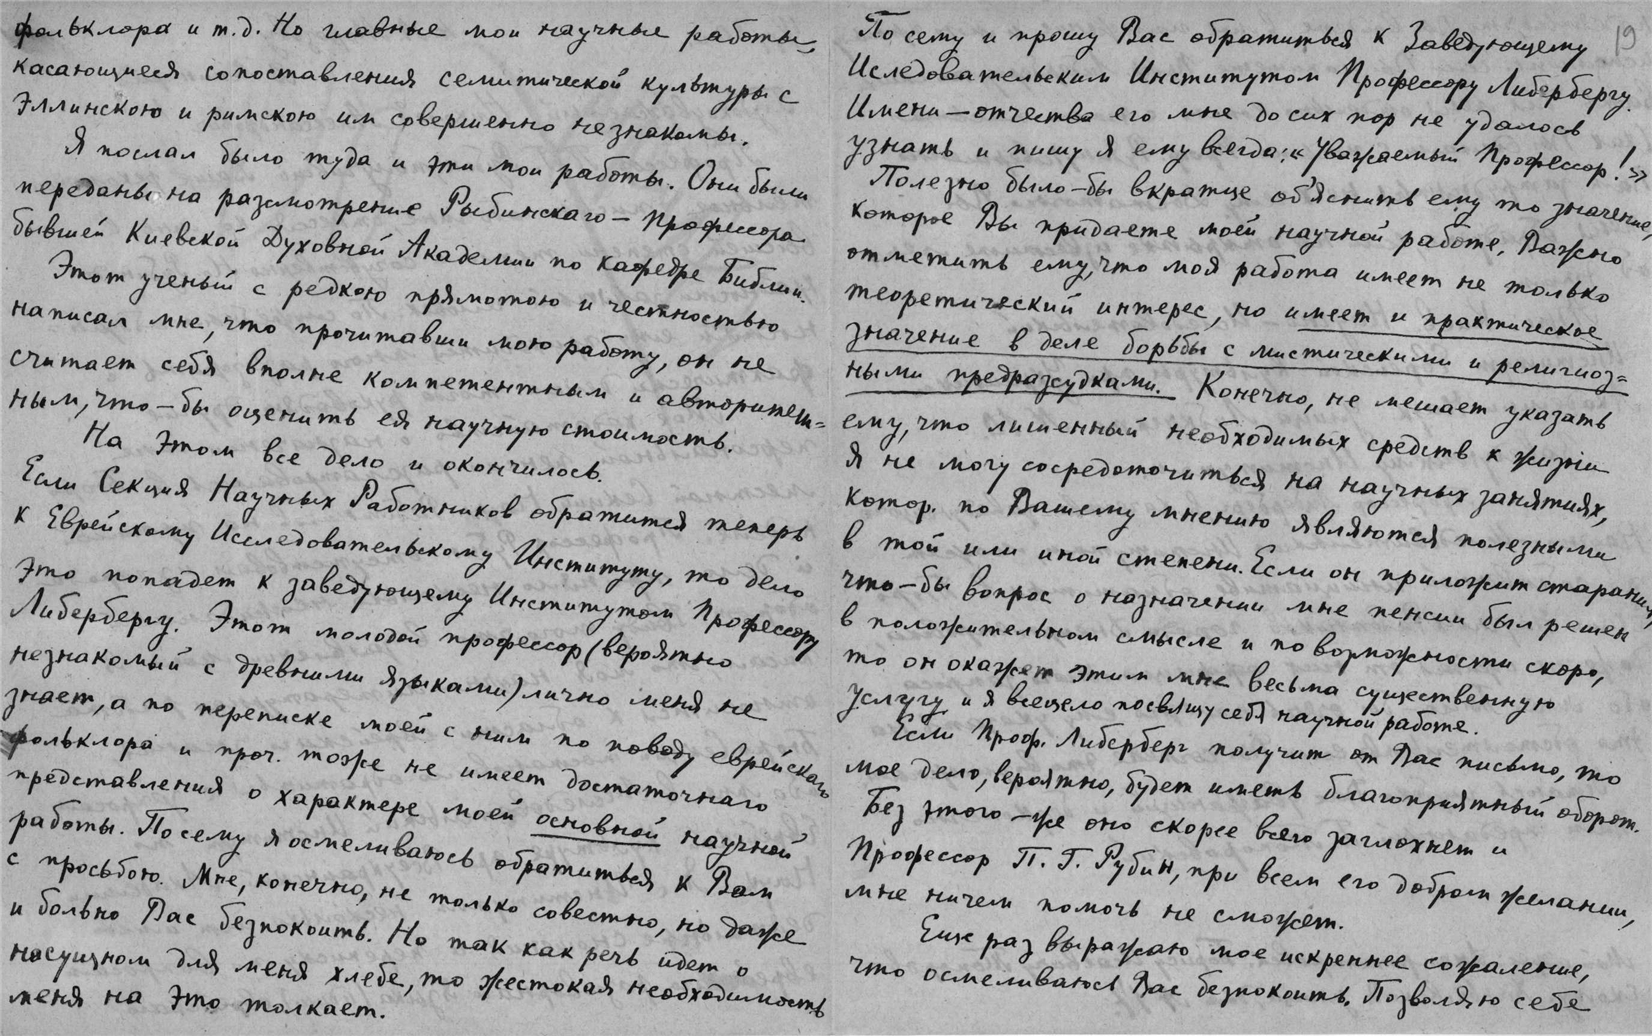 фольклора и т.д. Но главные мои научные работы,
касающиеся сопоставления семитической культуры с
Эллинскою и римскою им совершенно незнакомы.
Я послал было туда и эти мои работы. Они были
переданы на разсмотрение Рыбинскаго — профессора
бывшей Киевской Духовной Академии по кафедре Библии.
Этот ученый с редкою прямотою и честностью
написал мне, что прочитавши мою работу, он не
считает себя вполне компетентным и авторитет=
ным, что-бы оценить ея научную стоимость.
На этом все дело и окончилось.
Если Секция Научных Работников обратится теперь
к Еврейскому Исследовательскому Институту, то дело
это попадет к заведующему Институтом Профессору
Либербергу. Этот молодой профессор (вероятно
незнакомый с древними языками) лично меня не
знает, а по переписке моей с ним по поводу еврейскаго
фольклора и проч. тоже не имеет достаточнаго
представления о характере моей основной научной
работы. Посему я осмеливаюсь обратиться к Вам
с просьбою. Мне, конечно, не только совестно, но даже
и больно Вас безпокоить. Но так как речь идет о
насущном для меня хлебе, то жестокая необходимость
меня на это толкает.
19
По сему и прошу Вас обратиться к Заведующему
Иследовательским Институтом Профессору Либербергу.
Имени — отчества его мне до сих пор не удалось
узнать и пишу я ему всегда: «Уважаемый Профессор!»
Полезно было-бы вкратце об'яснить ему то значение,
которое Вы придаете моей научной работе. Важно
отметить ему, что моя работа имеет не только
теоретический интерес, но имеет и практическое
значение в деле борьбы с мистическими и религиоз=
ными предразсудками. Конечно, не мешает указать
ему, что лишенный необходимых средств к жизни
я не могу сосредоточиться на научных занятиях,
котор. по Вашему мнению являются полезными
в той или иной степени. Если он приложит старания,
что-бы вопрос о назначении мне пенсии был решен
в положительном смысле и по возможности скоро,
то он окажет этим мне весьма существенную
услугу и я всецело посвящу себя научной работе.
Если Проф. Либерберг получит от Вас письмо, то
мое дело, вероятно, будет иметь благоприятный оборот.
Без этого-же оно скорее всего заглохнет и
Профессор П. Г. Рубин, при всем его добром желании,
мне ничем помочь не сможет.
Еще раз выражаю мое искреннее сожаление,
что осмеливаюсь Вас безпокоить. Позволяю себе